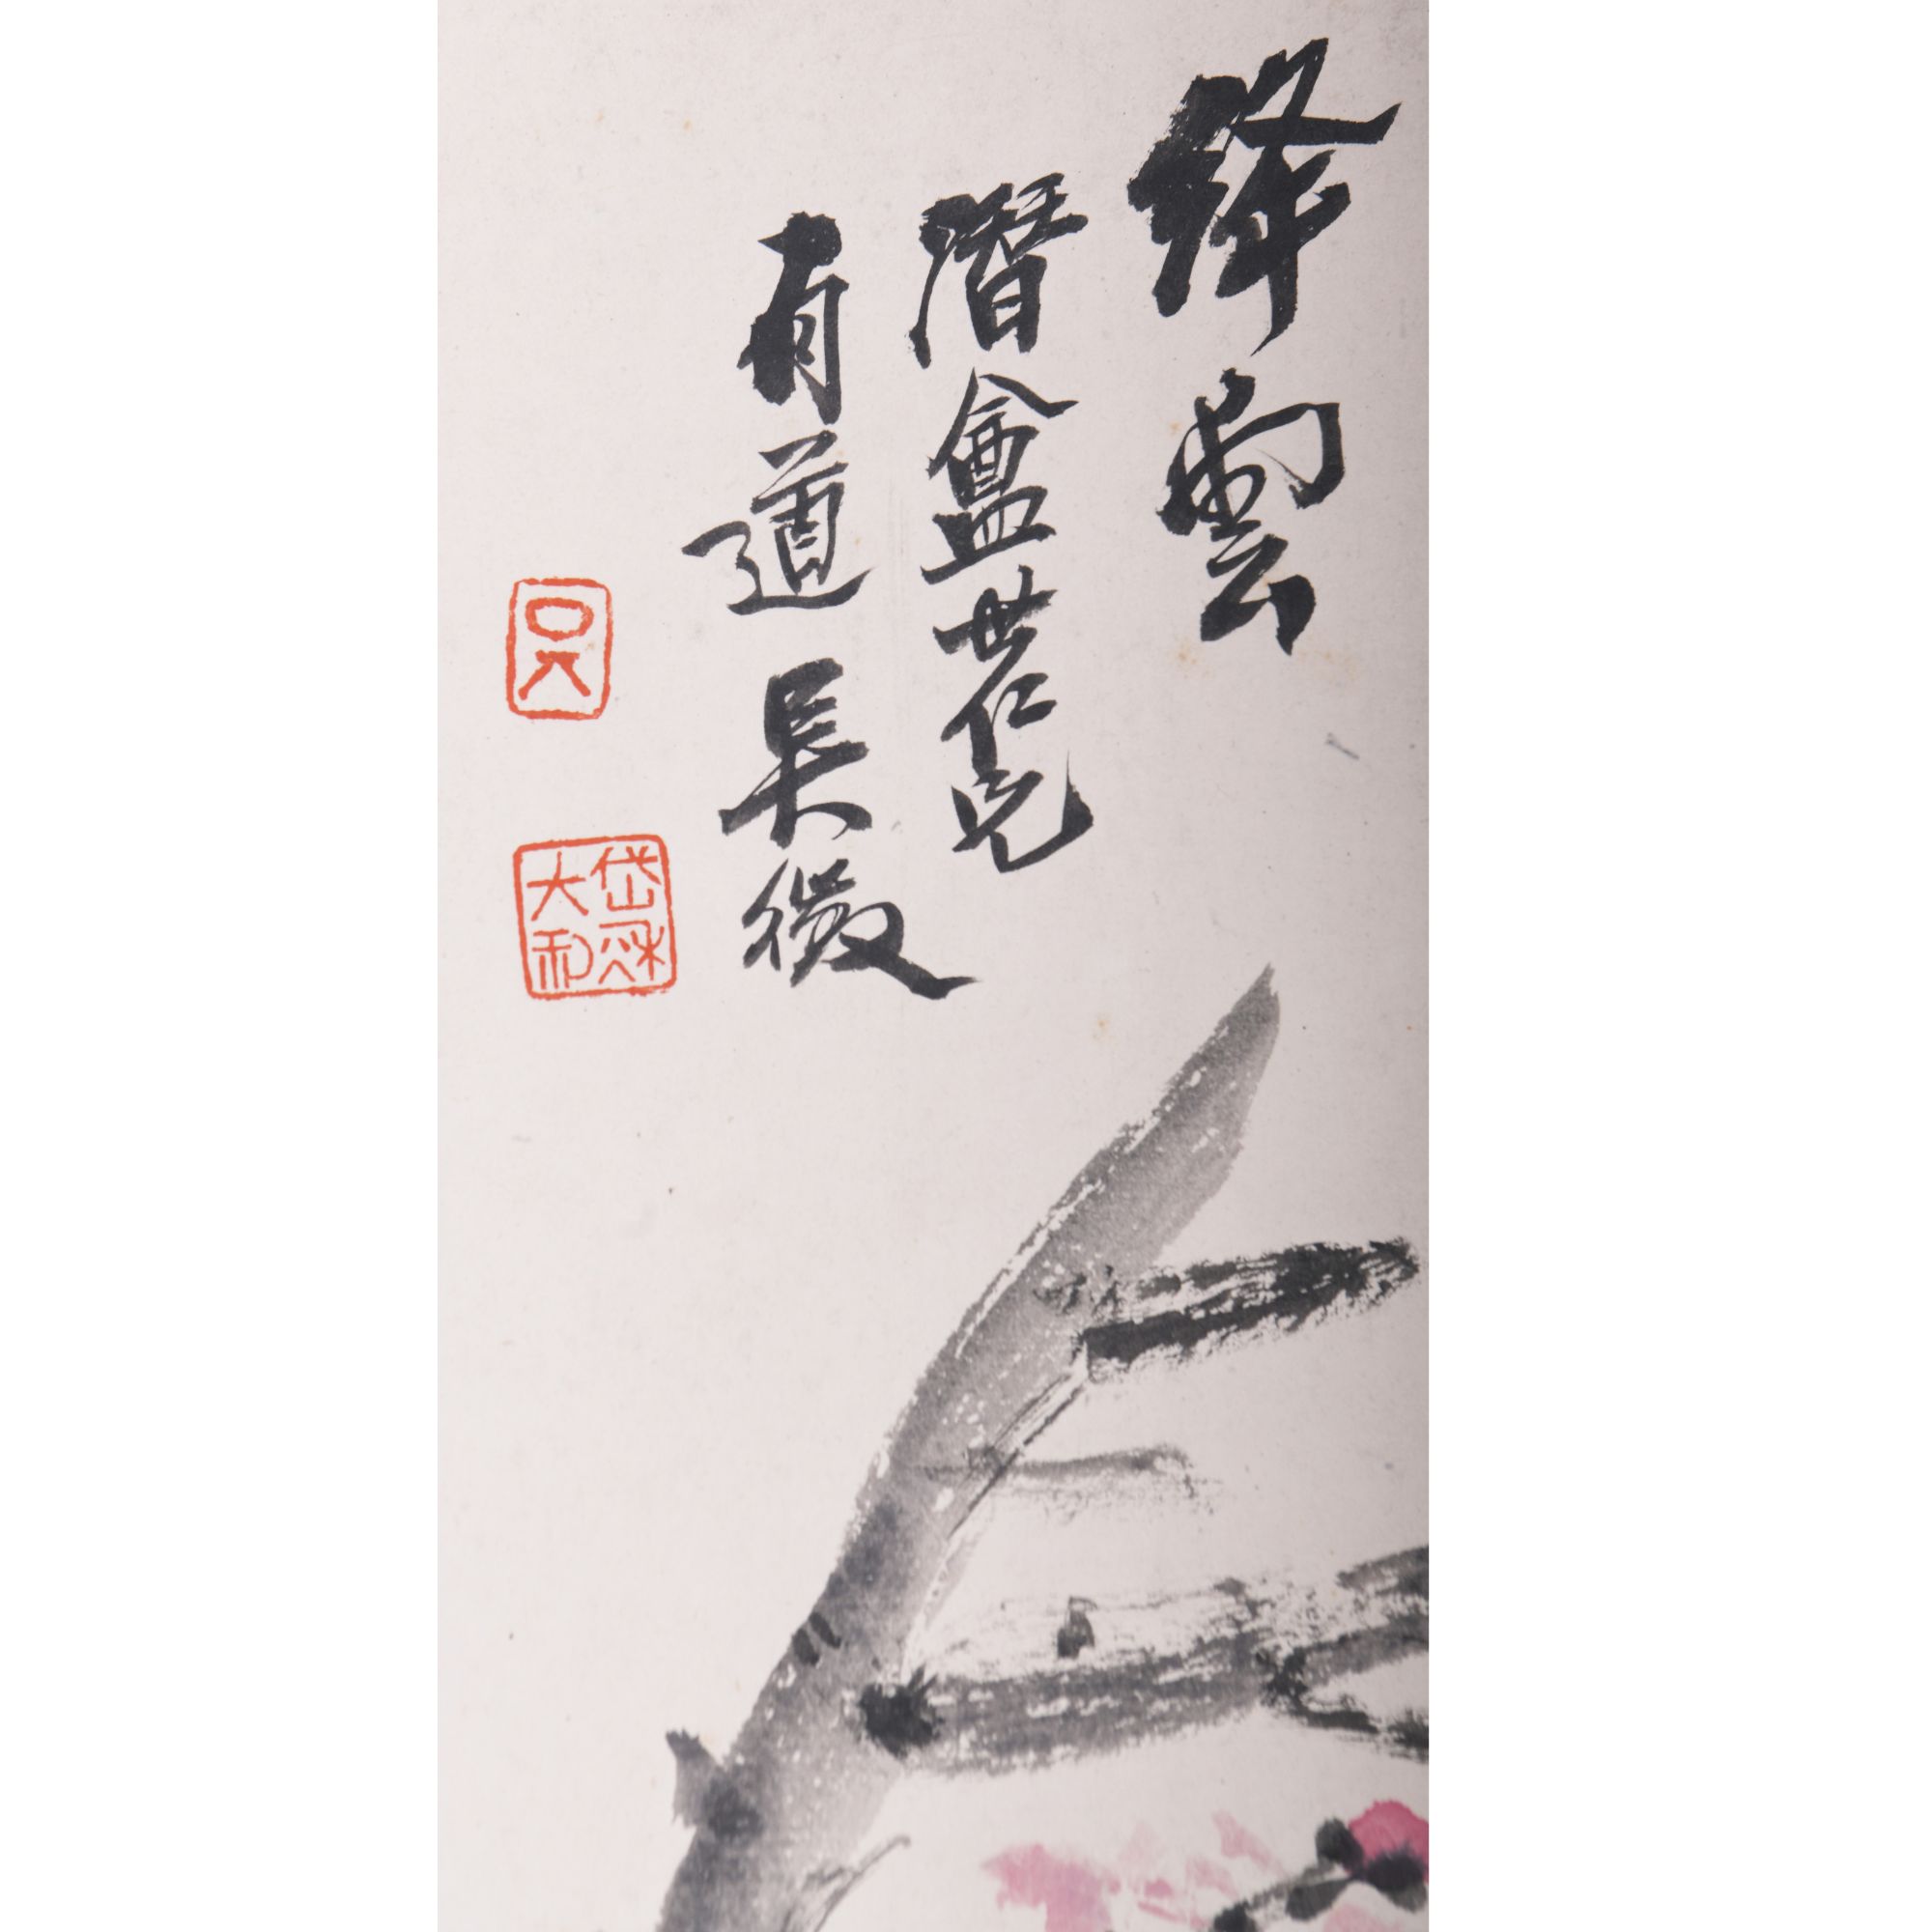 絳雲
潛盦世仁兄
有道 吳徵
吳
岱秋
大利